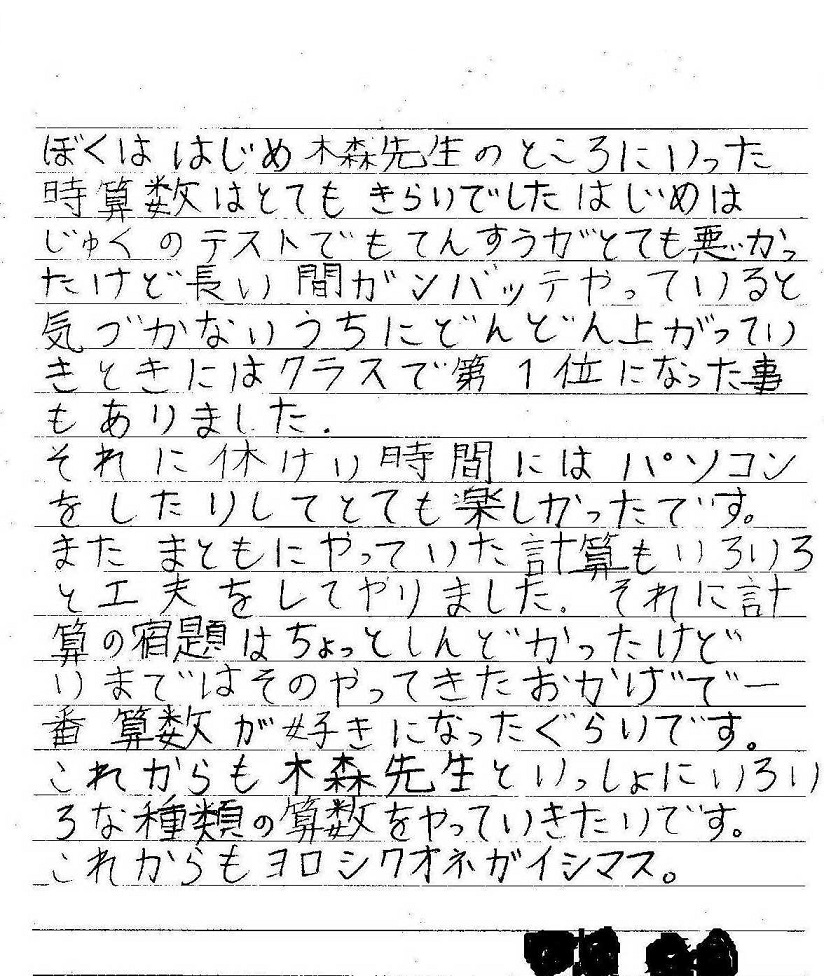 ぼくは はじめ 木森先生のところにいった
時算数はとても きらいでした はじめは
じゅくのテストでもてんすうがとても悪かっ
たけど長い間ガンバッテやっていると
気づかないうちにどんどん上がってい
きときにはクラスで第1位になった事
もありました.
それに休けい時間にはパソコン
をしたりしてとても楽しかったです。
また まともにやっていた計算もいろいろ
と工夫をしてやりました。それに計
算の宿題はちょっとしんどかったけど
いまではそのやってきたおかげで一
番 算数が好きになったぐらいです。
これからも木森先生といっしょにいろい
ろな種類の算数をやっていきたいです。
これからもヨロシクオネガイシマス。